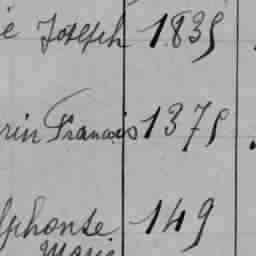 e Joseph 1835
rin Francois 1375
lphonse 149
Marie